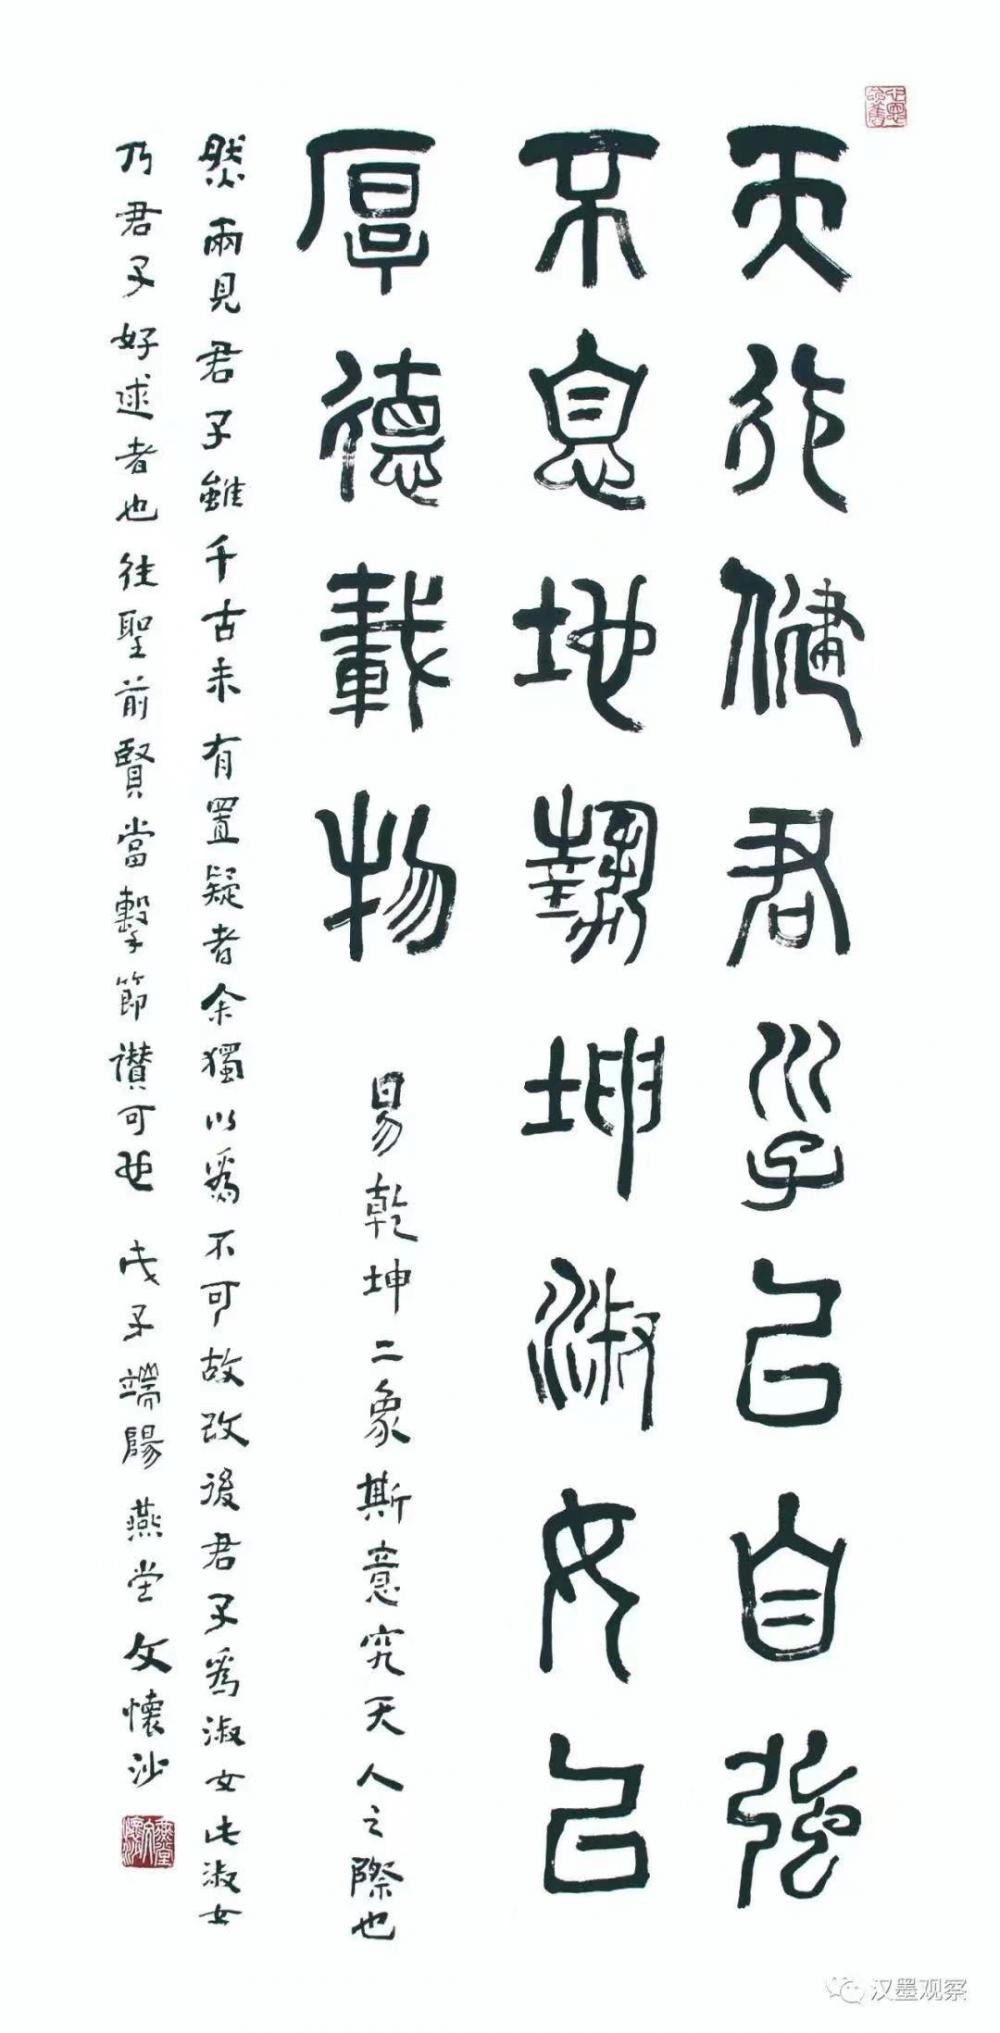 天行健君子以自強
不息地勢坤淑女以
厚德載物
易乾坤二象斯意究天人之際也
然兩見君子雖千古未有置疑者余獨以爲不可故改後君子爲淑女此淑女
乃君子好逑者也往聖前賢當擊節讚可也 戊子端陽燕堂文懷沙
汉墨观察